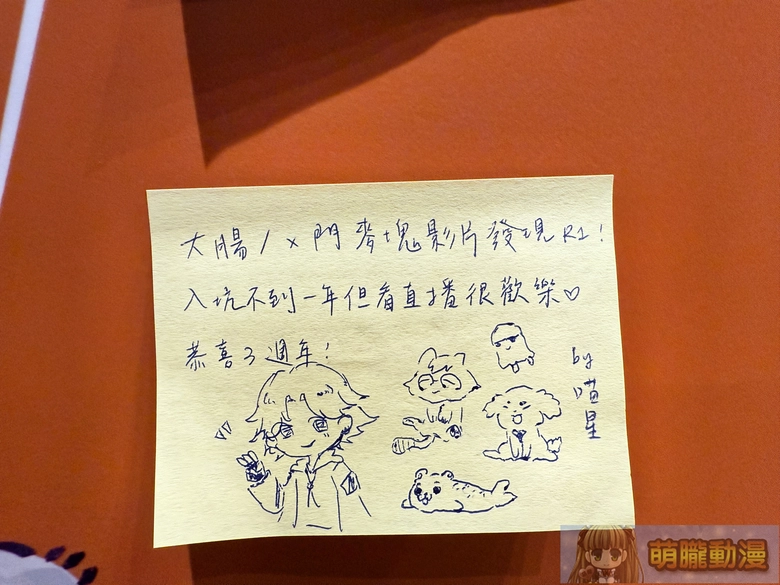 大腸/x門麥塊影片發現R1!
入坑不到一年但看直播很歡樂♡
恭喜3週年!
by
喵星
萌朧動漫